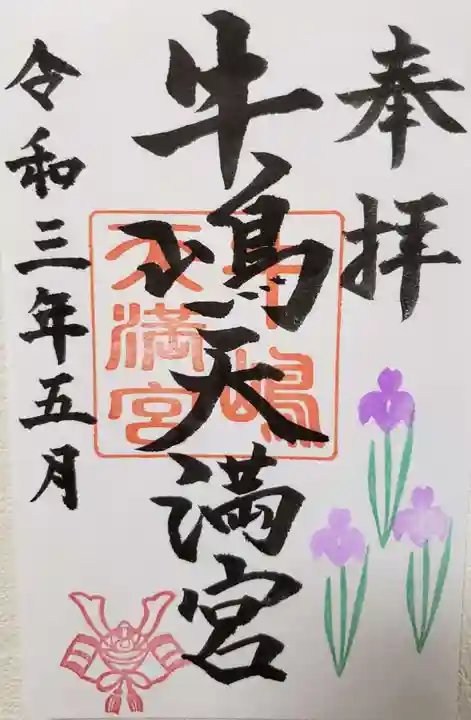 奉拝
牛嶋天満宮
令和三年五月
牛嶋
天満宮